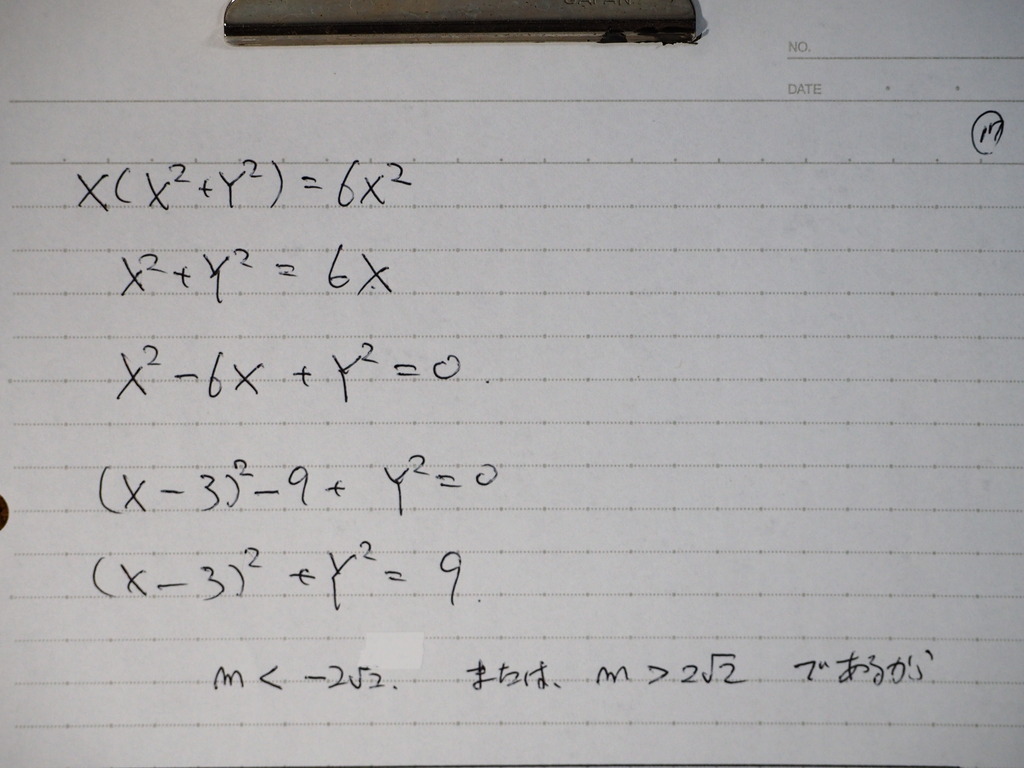 JAPAN
NO.
DATE
X(X²+Y²)=6X²
X²+Y²=6X
X²-6X+Y²=0.
(X-3)²-9+Y²=0
(X-3)²+Y²=9.
m<-2√2. または、m>2√2 であるから